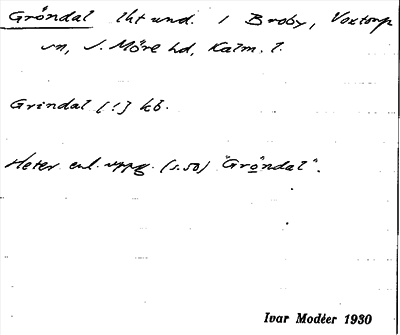 Gröndal lht und. 1 Broby, Voxtorp
sn, S. Möre hd, Kalm. l.
Grindal [!] kb.
Heter enl. uppg. (s. 50) "Gröndal".
Ivar Modéer 1930